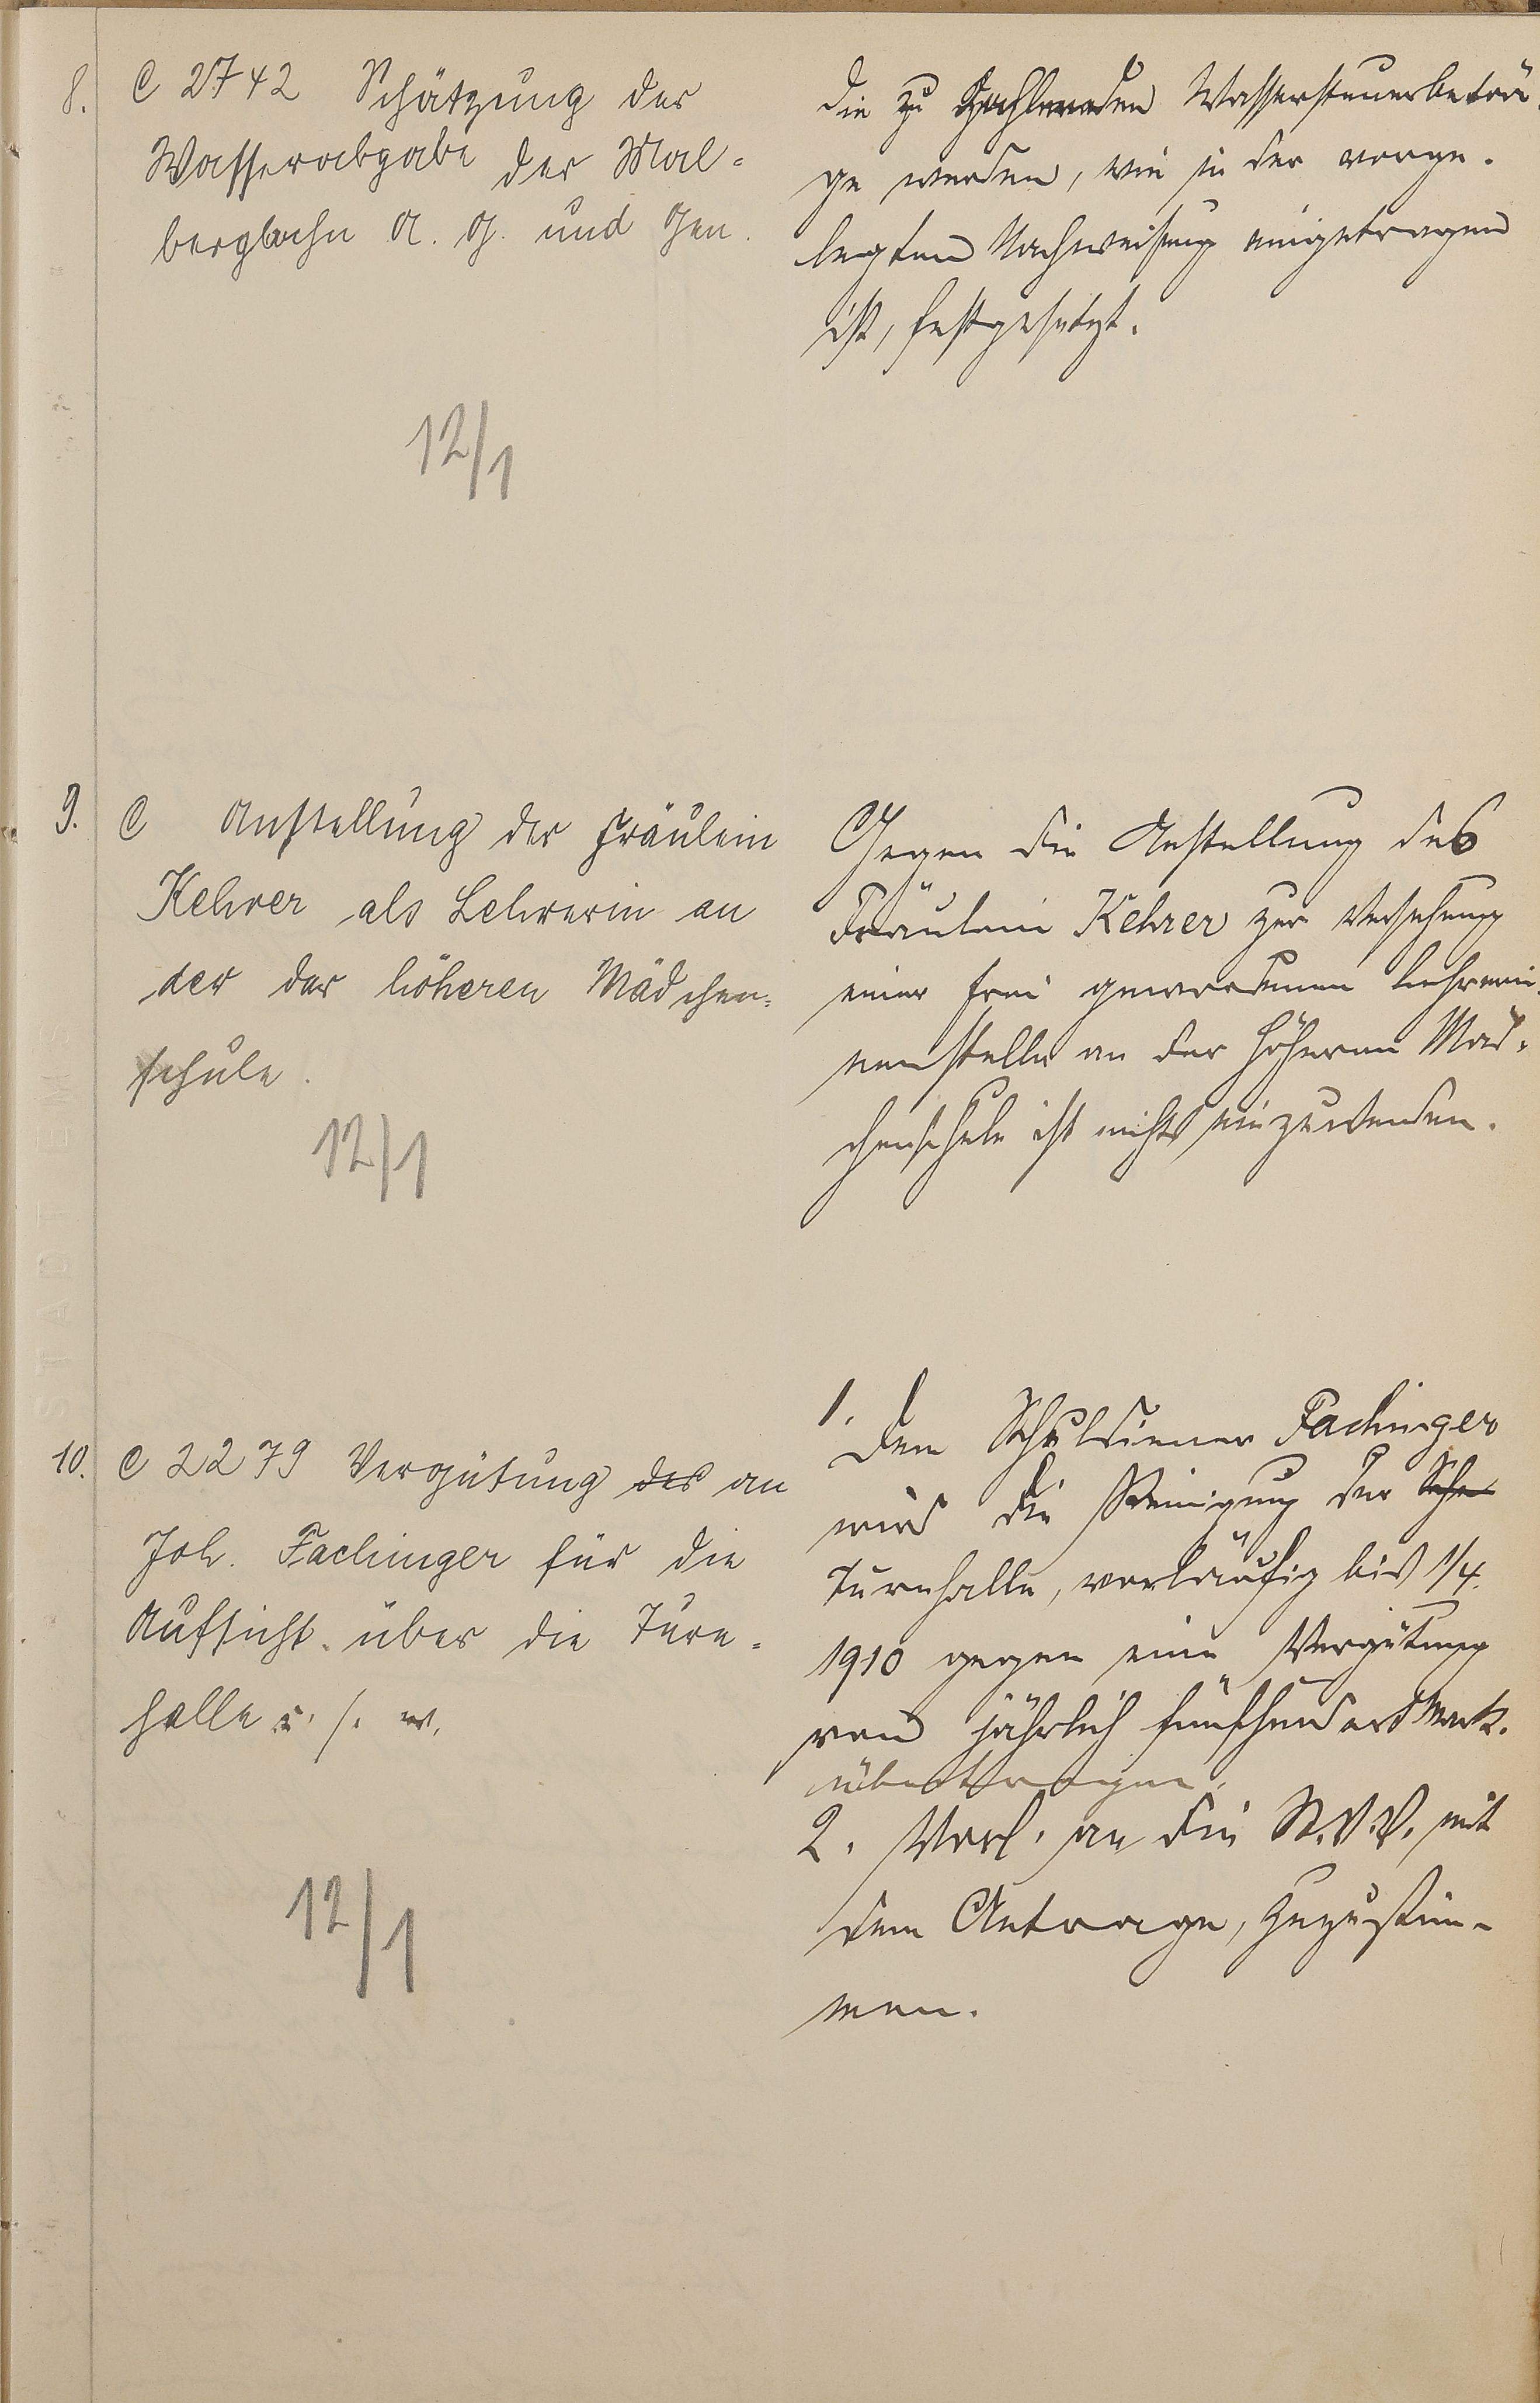 8.
C 2742 Schätzung der
Wasserabgabe der Mal-
bergbahn A. G. und Gen.
12/1
Die zu zahlenden Wassersteuerbeträ-
ge werden, wie in der vorge-
legten Nachweisung eingetragen
ist, festgesetzt.
9.
C Anstellung der Fräulein
Kehrer als Lehrerin an
der der höheren Mädchen-
schule.
12/1
Gegen die Anstellung des
Fräulein Kehrer zur Versehung
einer frei gewordenen Lehrerin-
nenstelle an der höheren Mäd-
chenschule ist nichts einzuwenden.
10.
C 2279 Vergütung des an
Joh. Fachinger für die
Aufsicht über die Turn-
halle u. s. w.
12/1
1. Dem Schuldiener Fachinger
wird die Reinigung der Sch
Turnhalle, vorläufig bis 1/4.
1910 gegen eine Vergütung
von jährlich fünfhundert Mark.
übertragen.
2. Vorl. an die St.V.V. mit
dem Antrage, zuzustim-
men.
STADT EM